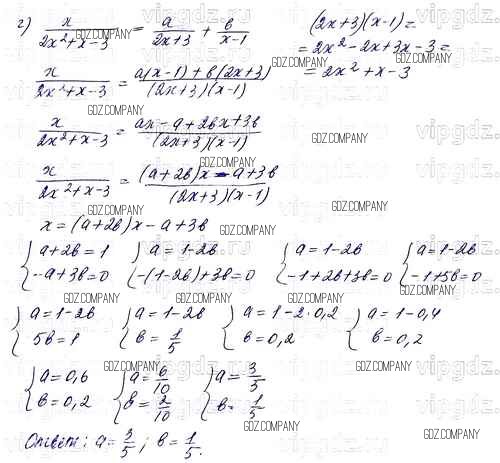 г) x/(2x²+x-3) = a/(2x+3) + b/(x-1)
(2x+3)(x-1) =
= 2x² - 2x + 3x - 3 =
= 2x² + x - 3
x/(2x²+x-3) = (a(x-1) + b(2x+3))/((2x+3)(x-1))
x/(2x²+x-3) = (ax - a + 2bx + 3b)/((2x+3)(x-1))
x/(2x²+x-3) = ((a+2b)x - a + 3b)/((2x+3)(x-1))
x = (a+2b)x - a + 3b
{a+2b=1 {a=1-2b {a=1-2b {a=1-2b
{-a+3b=0 {-(1-2b)+3b=0 {-1+2b+3b=0 {-1+5b=0
{a=1-2b {a=1-2b {a=1-2·0,2 {a=1-0,4
{5b=1 {b=1/5 {b=0,2 {b=0,2
{a=0,6 {a=6/10 {a=3/5
{b=0,2 {b=2/10 {b=1/5
Ответ: a=3/5; b=1/5.
GDZ.COMPANY
vipgdz.ru